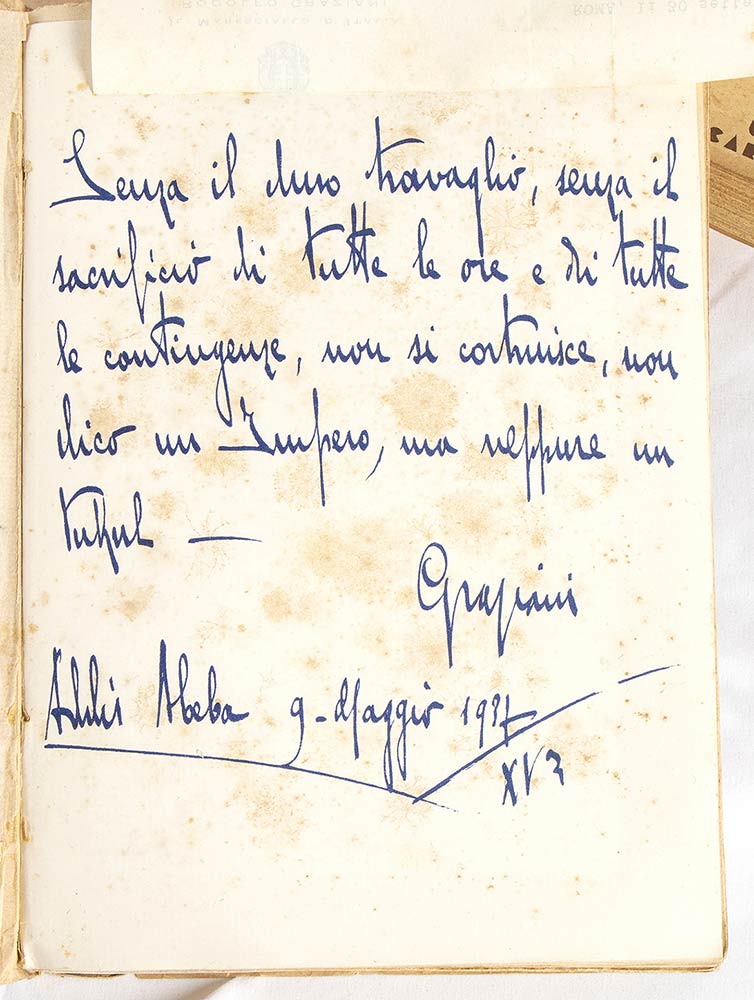 RODOLFO GRAZIANI
ROMA, li 30 sette
Senza il duro travaglio, senza il
sacrificio di tutte le ore e di tutte
le contingenze, non si costruisce, non
dico un Impero, ma neppure un
tukul —
Graziani
Addis Abeba 9 - Maggio 1937
XVº